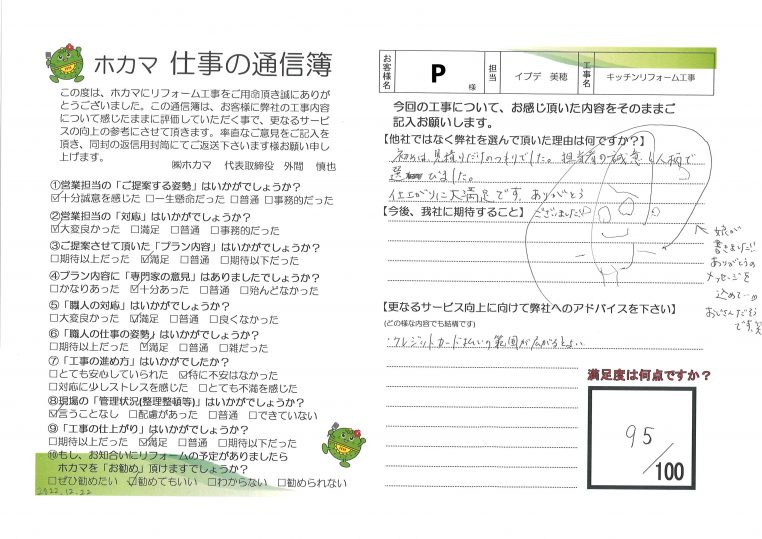 ホカマ 仕事の通信簿
この度は、ホカマにリフォーム工事をご用命頂き誠にありが
とうございました。この通信簿は、お客様に弊社の工事内容
について感じたままに評価していただく事で、更なるサービ
スの向上の参考にさせて頂きます。率直なご意見をご記入を
頂き、同封の返信用封筒にてご返送下さいます様お願い申し
上げます。
㈱ホカマ 代表取締役 外間 慎也
①営業担当の「ご提案する姿勢」はいかがでしょうか?
☑十分誠意を感じた □一生懸命だった □普通 □事務的だった
②営業担当の「対応」はいかがでしょうか?
☑大変良かった □満足 □普通 □事務的だった
③ご提案させて頂いた「プラン内容」はいかがでしょうか?
□期待以上だった ☑満足 □普通 □期待以下だった
④プラン内容に「専門家の意見」はありましたでしょうか?
□かなりあった ☑十分あった □普通 □殆んどなかった
⑤「職人の対応」はいかがでしょうか?
□大変良かった ☑満足 □普通 □良くなかった
⑥「職人の仕事の姿勢」はいかがでしょうか?
□期待以上だった ☑満足 □普通 □雑だった
⑦「工事の進め方」はいかがでしたか?
□とても安心していられた ☑特に不安はなかった
□対応に少しストレスを感じた □とても不満を感じた
⑧現場の「管理状況(整理整頓等)」はいかがでしょうか?
☑言うことなし □配慮があった □普通 □できていない
⑨「工事の仕上がり」はいかがでしょうか?
□期待以上だった ☑満足 □普通 □期待以下だった
⑩もし、お知合いにリフォームの予定がありましたら
ホカマを「お勧め」頂けますでしょうか?
□ぜひ勧めたい ☑勧めてもいい □わからない □勧められない
2022.12.22
お客様名 P 様 担当 イブデ 美穂 工事名 キッチンリフォーム工事
今回の工事について、お感じ頂いた内容をそのままご
記入お願いします。
【他社ではなく弊社を選んで頂いた理由は何ですか?】
初めは見積りだけのつもりでした。担当者の誠意と人柄で
選びました。
仕上がりに大満足です。ありがとう
ございました!
【今後、我社に期待すること】
娘が
書きました!!
ありがとうの
メッセージを
込めて
おじさんだそう
です。笑
【更なるサービス向上に向けて弊社へのアドバイスを下さい】
(どの様な内容でも結構です)
・クレジットカード払いの範囲が広がるとよい
満足度は何点ですか?
95
/100